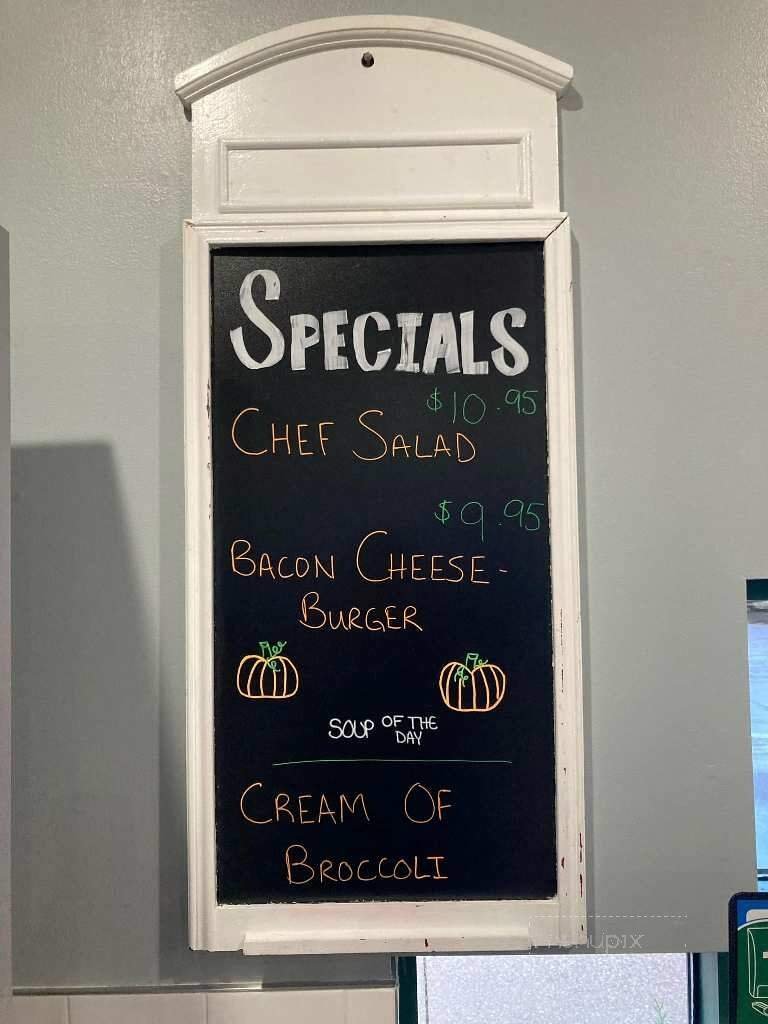 SPECIALS
$10.95
CHEF SALAD
$9.95
BACON CHEESE-
BURGER
SOUP OF THE
DAY
CREAM OF
BROCCOLI
menupix